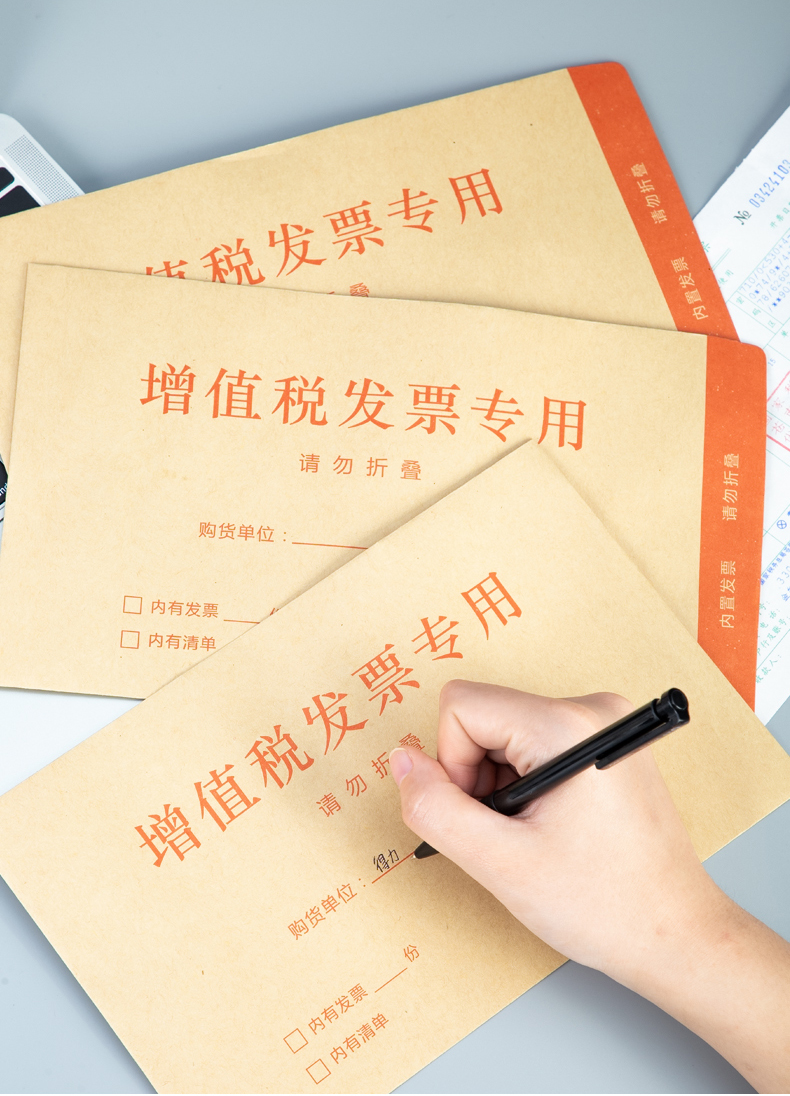 值税发票专用
叠
请勿折叠
内置发票
№ 03424103
增值税发票专用
请勿折叠
购货单位：
内有发票
内有清单
请勿折叠
内置发票
增值税发票专用
请勿折叠
购货单位：得力
内有发票____份
内有清单
收款人：